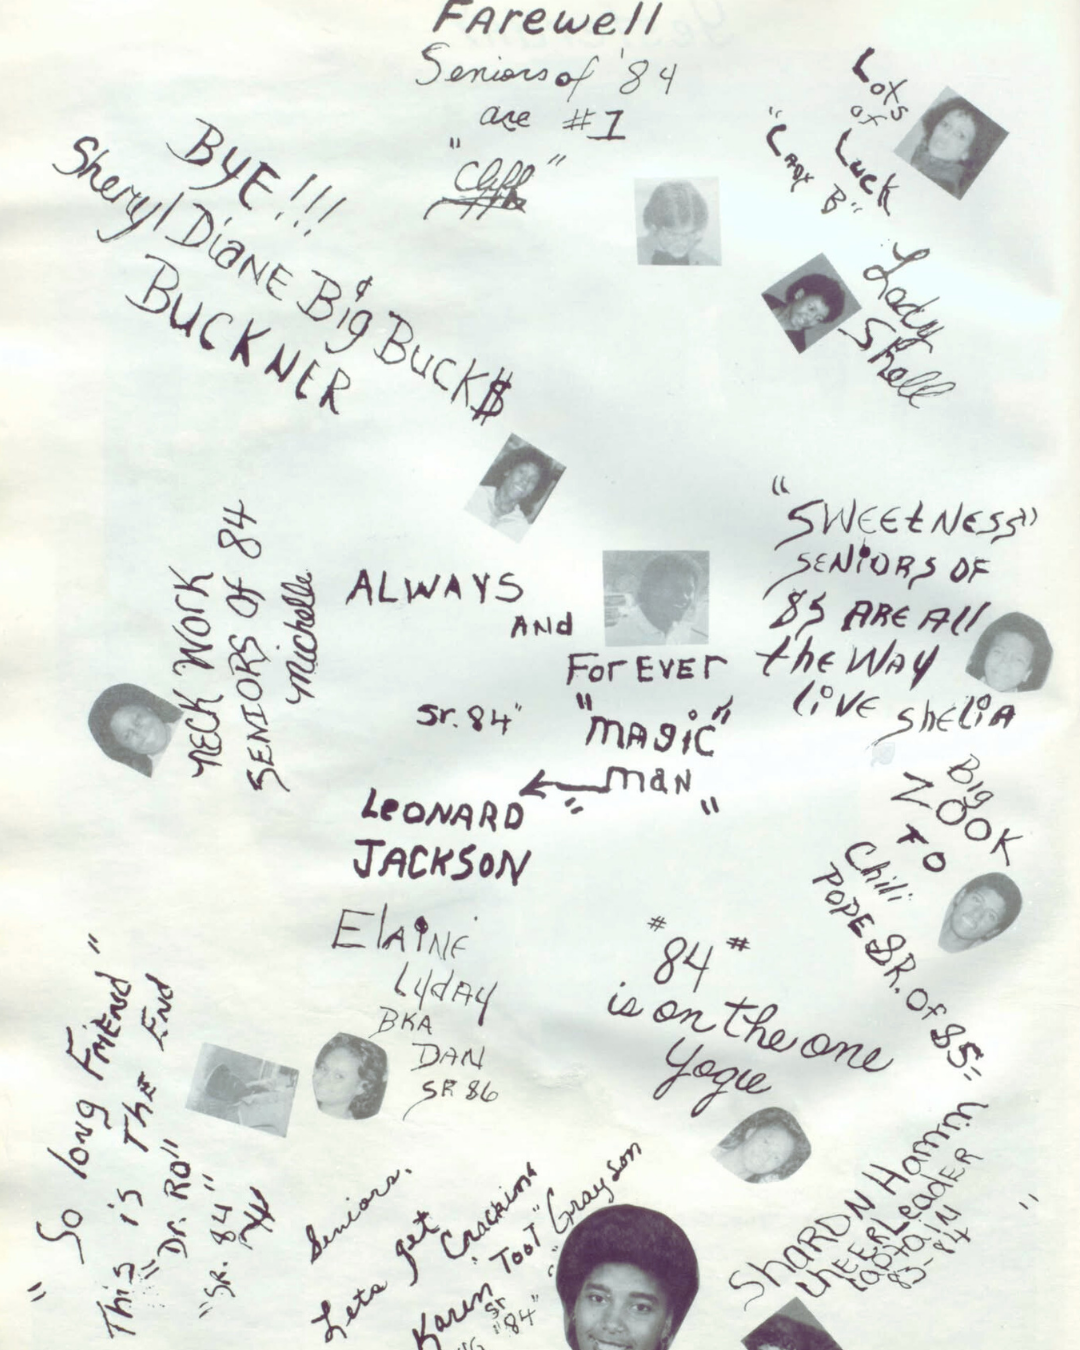 Farewell
Seniors of '84
are #1
"Cliff"
Lots
of
Luck
"Lady B"
BYE!!!
Sheryl Diane Big Buck$
BUCKNER
Lady
Shell
"SWEETNESS"
SENIORS OF
85 ARE All
the WAY
liVE Shelia
NECK WORK
SENIORS Of 84
Michelle
ALWAYS
And
ForEVEr
Sr. 84"
"MAgiC"
mAN
"
LeONARD
JACKSON
Big
ZOOK
TO
Chili
POPE SR. Of 85"
ElAiNE
LydAY
BKA
DAN
SR 86
# 84 #
is on the one
Yogie
"So long Friend"
This is The End
"Dr. RO"
"SR. 84"
Seniors.
Lets get Cracking
Karen "Toot" Grayson
Sr "84"
SHARON Hamm
CHEERLeadER
CAptaiN
83-84